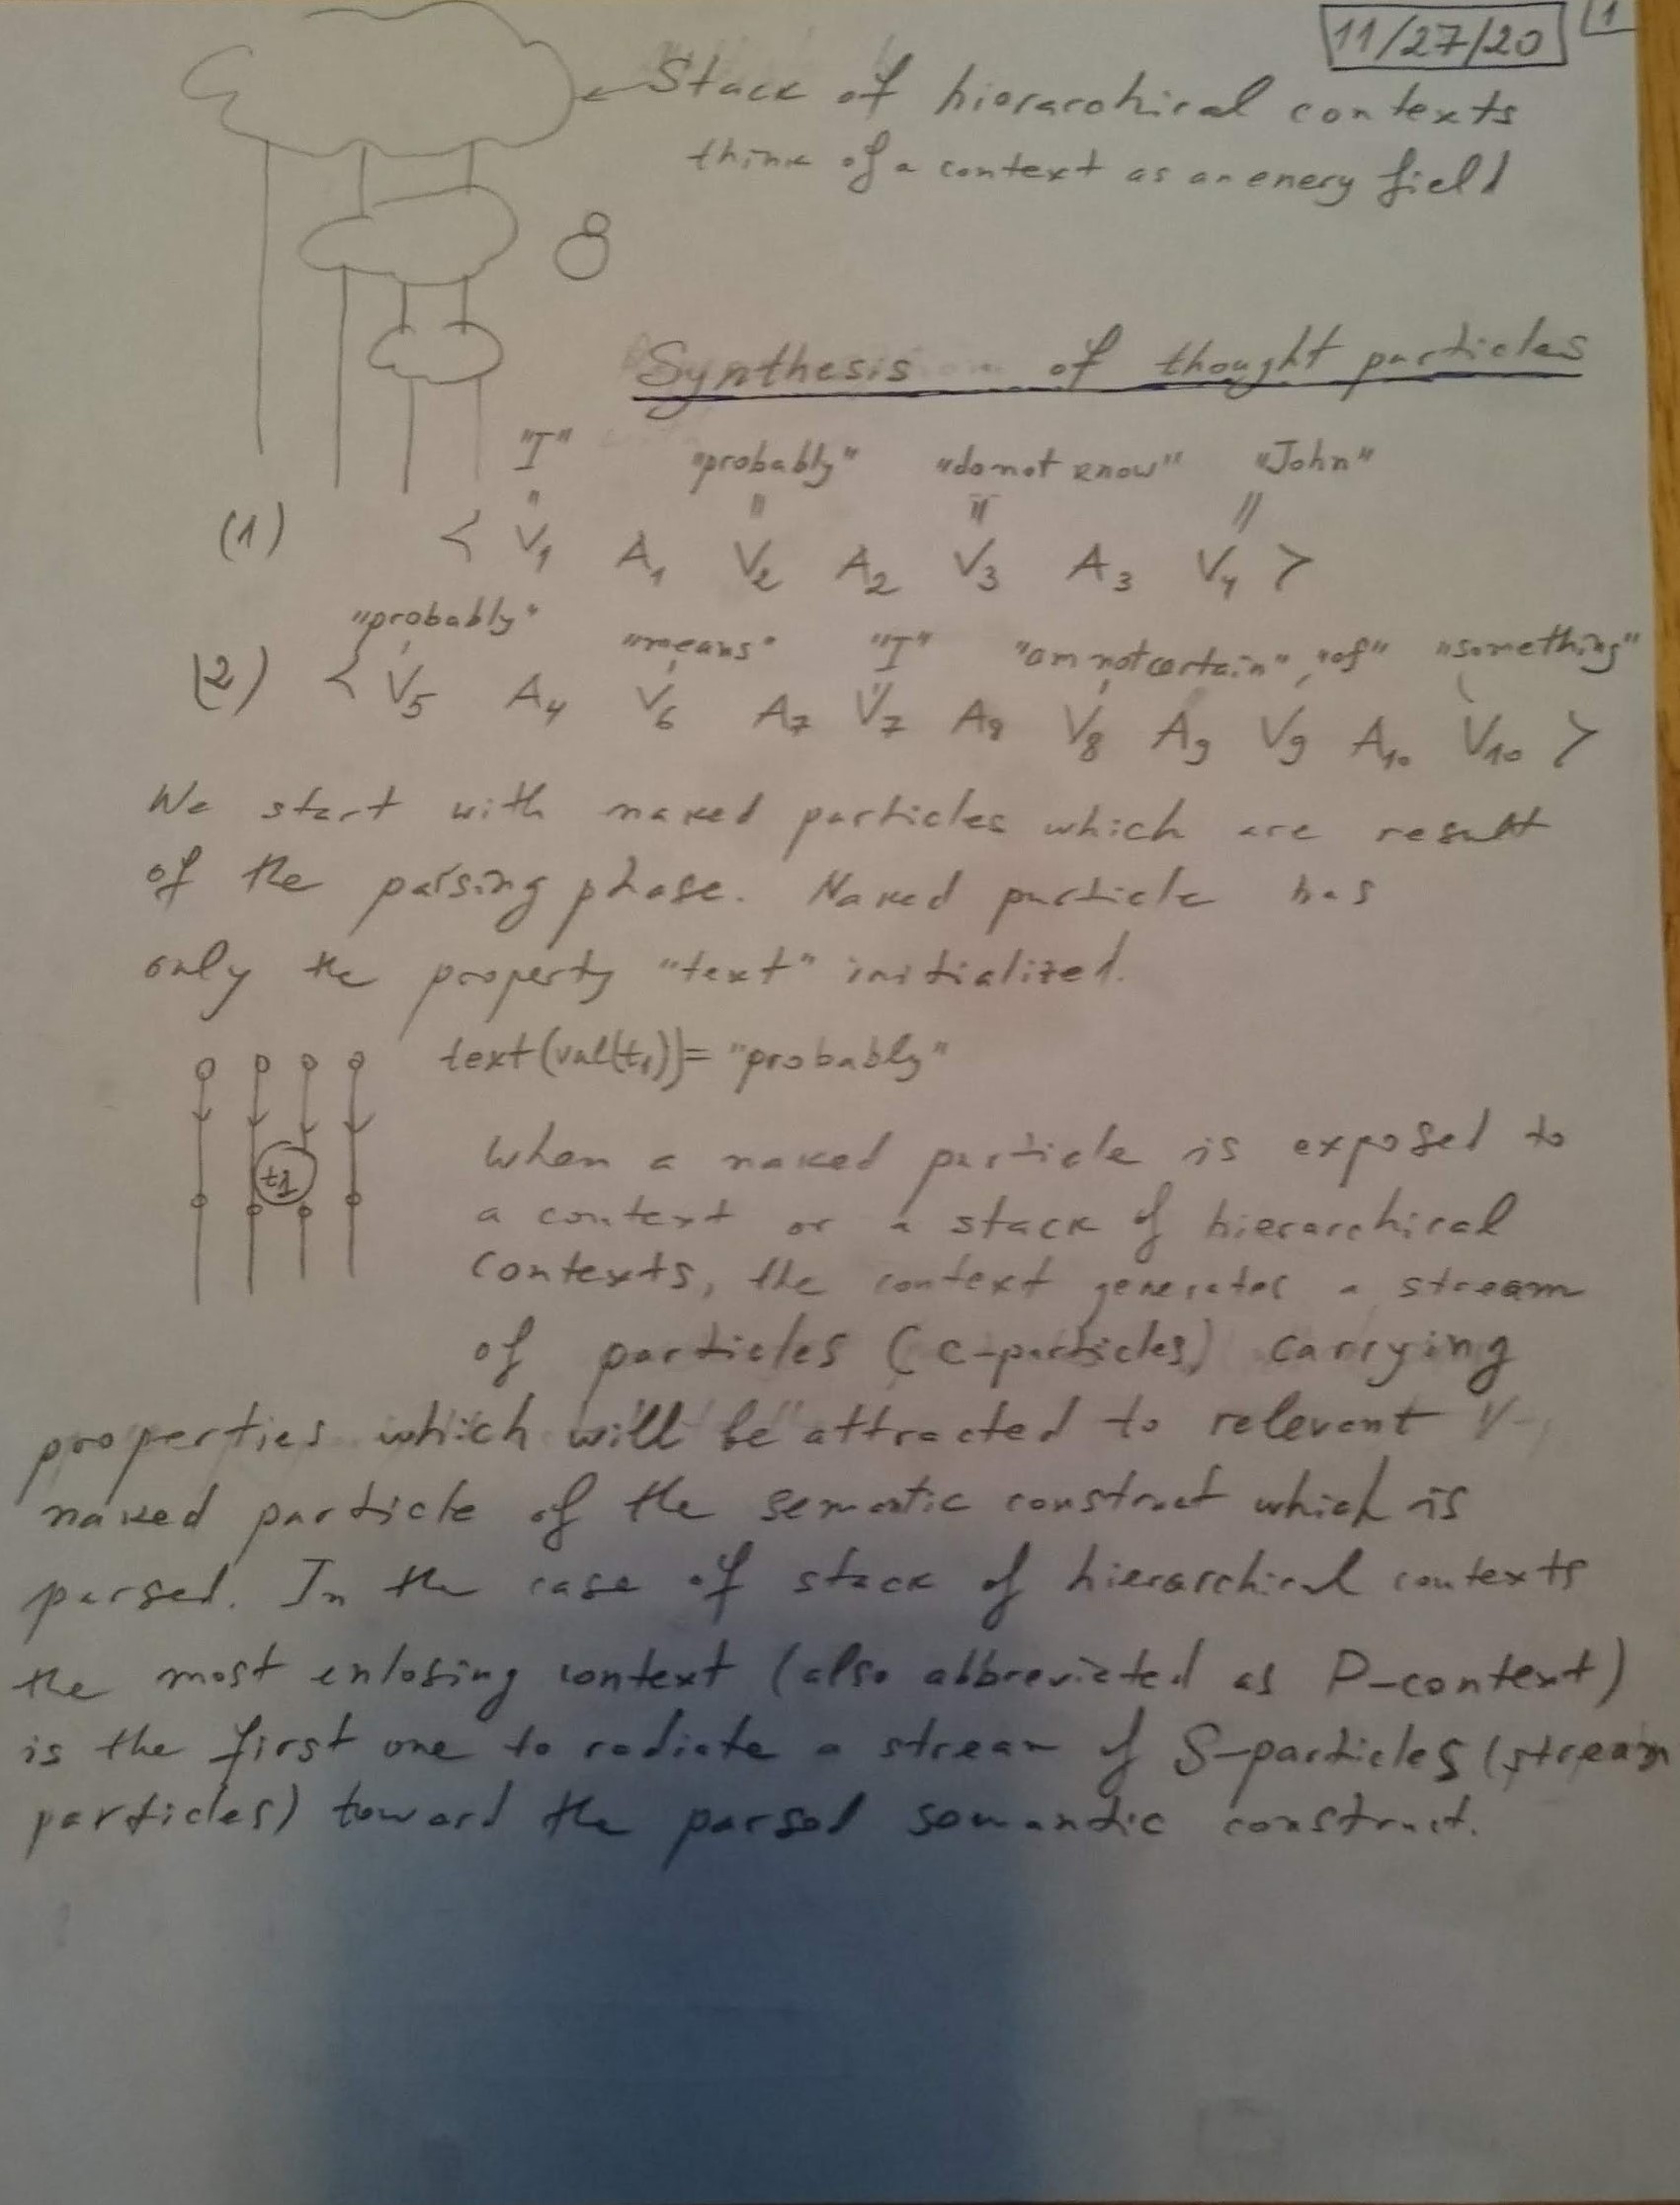 11/27/20
1
Stack of hierarchical contexts
think of a context as an enery field
8
Synthesis of thought particles
"I" "probably" "do not know" "John"
(1) < V1 A1 V2 A2 V3 A3 V4 >
"probably" "means" "I" "am not certain" "of" "something"
(2) < V5 A4 V6 A7 V7 A8 V8 A9 V9 A10 V10 >
We start with naked particles which are result
of the parsing phase. Naked particle has
only the property "text" initialized.
text(val(t1))= "probably"
t1
When a naked particle is exposed to
a context or a stack of hierarchical
contexts, the context generates a stream
of particles (c-particles) carrying
properties which will be attracted to relevant V-
naked particle of the semantic construct which is
parsed. In the case of stack of hierarchical contexts
the most enlosing context (also abbreviated as P-context)
is the first one to radiate a stream of S-particles (stream
particles) toward the parsed semantic construct.